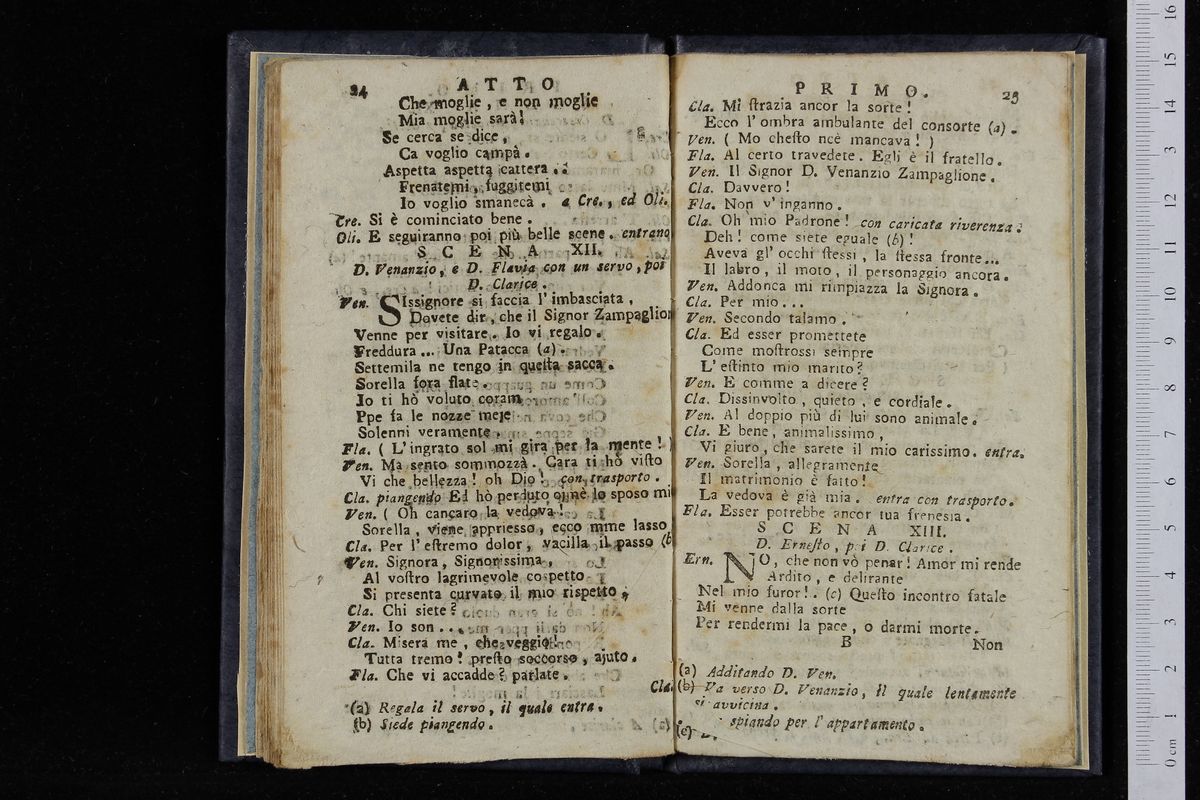 24 ATTO
Che moglie, e non moglie
Mia moglie sarà!
Se cerca se dice,
Ca voglio campà.
Aspetta aspetta cattera..:
Frenatemi, fuggitemi
Io voglio smanecà. a Cre., ed Oli.
Cre. Si è cominciato bene.
Oli. E seguiranno poi più belle scene. entrano
SCENA XII.
D. Venanzio, e D. Flavia con un servo, poi
D. Clarice.
Ven. SIssignore si faccia l'imbasciata,
Dovete dir, che il Signor Zampaglion
Venne per visitare. Io vi regalo.
Freddura... Una Patacca (a).
Settemila ne tengo in questa sacca.
Sorella fora flate.
Io ti hò voluto coram
Ppe fa le nozze meje
Solenni veramente.
Fla. ( L'ingrato sol mi gira per la mente! )
Ven. Ma sento sommozzà. Cara ti hò visto
Vi che bellezza! oh Dio! con trasporto.
Cla. piangendo Ed hò perduto oimè lo sposo mi
Ven. ( Oh cancaro la vedova!
Sorella, viene appriesso, ecco mme lasso
Cla. Per l'estremo dolor, vacilla il passo (b
Ven. Signora, Signorissima,
Al vostro lagrimevole cospetto
Si presenta curvato il mio rispetto,
Cla. Chi siete?
Ven. Io son....
Cla. Misera me, che veggio!
Tutta tremo! presto soccorso, ajuto.
Fla. Che vi accadde? parlate.
Cla.
(a) Regala il servo, il quale entra.
(b) Siede piangendo.
PRIMO. 25
Cla. Mi strazia ancor la sorte!
Ecco l'ombra ambulante del consorte (a).
Ven. ( Mo chesto ncè mancava! )
Fla. Al certo travedete. Egli è il fratello.
Ven. Il Signor D. Venanzio Zampaglione.
Cla. Davvero!
Fla. Non v'inganno.
Cla. Oh mio Padrone! con caricata riverenza:
Deh! come siete eguale (b)!
Aveva gl'occhi stessi, la stessa fronte...
Il labro, il moto, il personaggio ancora.
Ven. Addonca mi rimpiazza la Signora.
Cla. Per mio...
Ven. Secondo talamo.
Cla. Ed esser promettete
Come mostrossi sempre
L'estinto mio marito?
Ven. E comme a dicere?
Cla. Dissinvolto, quieto, e cordiale.
Ven. Al doppio più di lui sono animale.
Cla. E bene, animalissimo,
Vi giuro, che sarete il mio carissimo. entra.
Ven. Sorella, allegramente
Il matrimonio è fatto!
La vedova è già mia. entra con trasporto.
Fla. Esser potrebbe ancor tua frenesia.
SCENA XIII.
D. Ernesto, poi D. Clarice.
Ern. NO, che non vò penar! Amor mi rende
Ardito, e delirante
Nel mio furor!. (c) Questo incontro fatale
Mi venne dalla sorte
Per rendermi la pace, o darmi morte.
B Non
(a) Additando D. Ven.
(b) Va verso D. Venanzio, il quale lentamente
si avvicina.
(c) spiando per l'appartamento.
0 cm 1 2 3 4 5 6 7 8 9 10 11 12 13 14 15 16